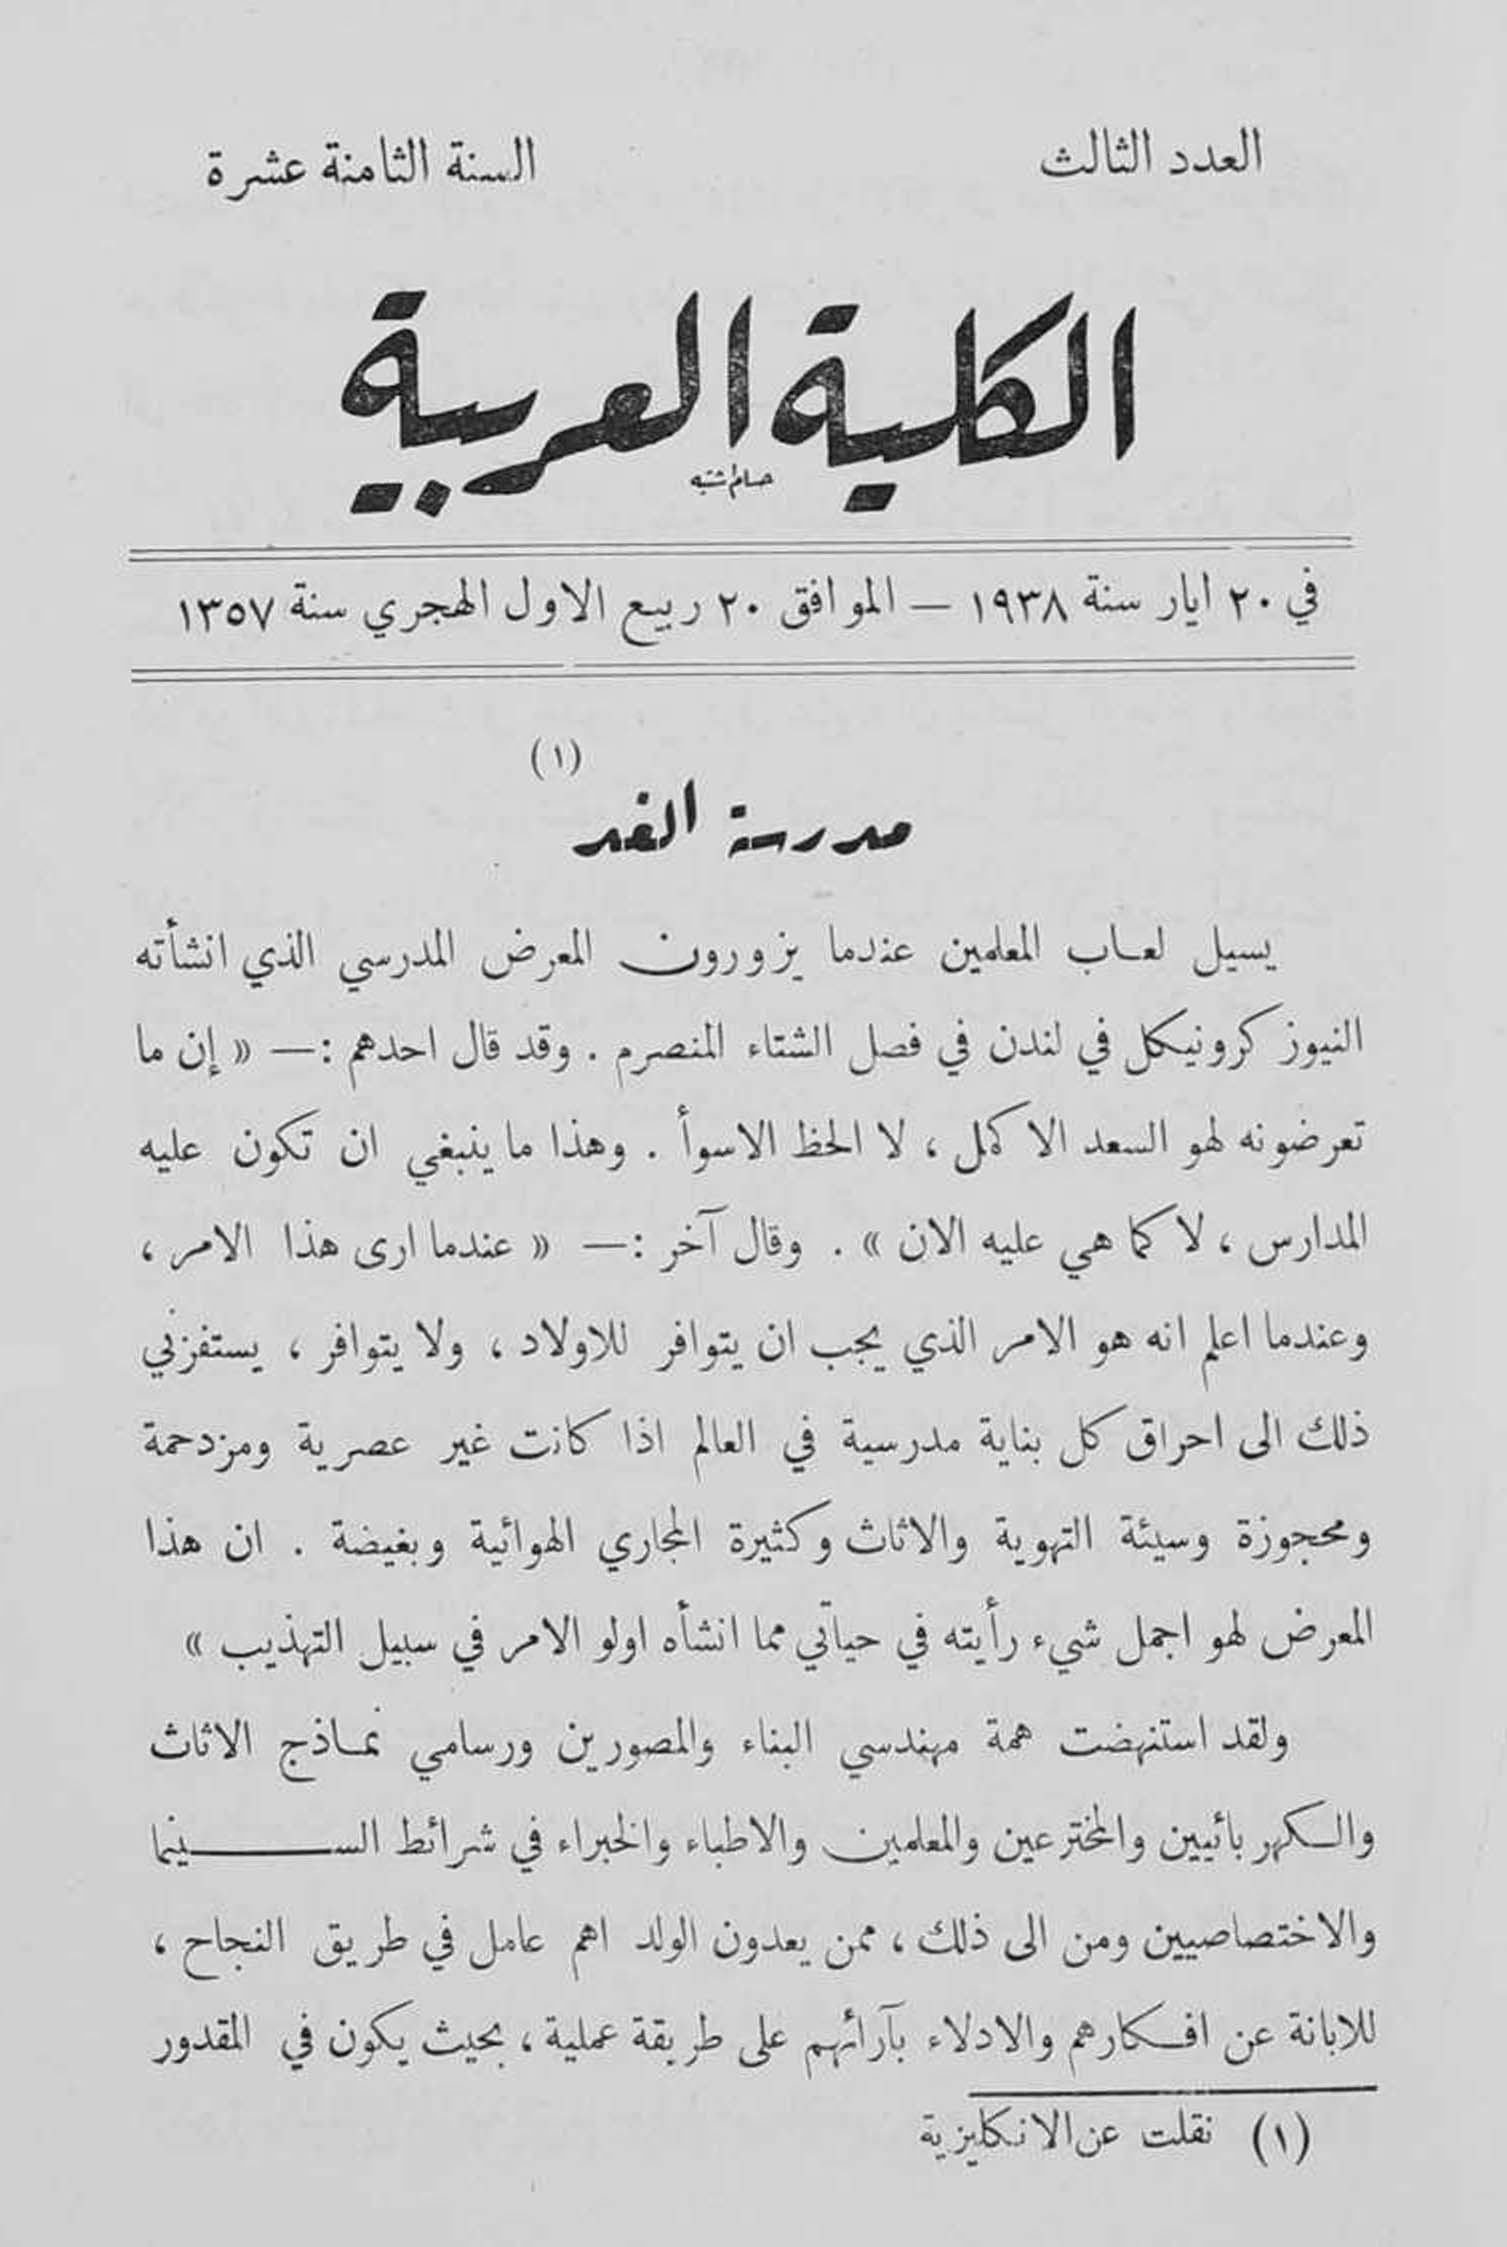 العدد الثالث
السنة الثامنة عشرة
الكلية العربية
في ٢٠ ايار سنة ١٩٣٨ — الموافق ٢٠ ربيع الاول الهجري سنة ١٣٥٧
(١)
مدرسة الغد
يسيل لعاب المعلمين عندما يزورون المعرض المدرسي الذي انشأته
النيوز كرونيكل في لندن في فصل الشتاء المنصرم . وقد قال احدهم :— « إن ما
تعرضونه لهو السعد الاكمل ، لا الحظ الاسوأ . وهذا ما ينبغي ان تكون عليه
المدارس ، لا كما هي عليه الان » . وقال آخر :— « عندما ارى هذا الامر ،
وعندما اعلم انه هو الامر الذي يجب ان يتوافر للاولاد ، ولا يتوافر ، يستفزني
ذلك الى احراق كل بناية مدرسية في العالم اذا كانت غير عصرية ومزدحمة
ومحجوزة وسيئة التهوية والاثاث وكثيرة المجاري الهوائية وبغيضة . ان هذا
المعرض لهو اجمل شيء رأيته في حياتي مما انشأه اولو الامر في سبيل التهذيب »
ولقد استنهضت همة مهندسي البناء والمصورين ورسامي نماذج الاثاث
والكهربائيين والمخترعين والمعلمين والاطباء والخبراء في شرائط السينما
والاختصاصيين ومن الى ذلك ، ممن يعدون الولد اهم عامل في طريق النجاح ،
للابانة عن افكارهم والادلاء بآرائهم على طريقة عملية ، بحيث يكون في المقدور
(١) نقلت عن الانكليزية